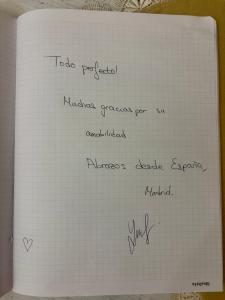 Todo perfecto!
Muchas gracias por su
amabilidad
Abrazos desde España,
Madrid.